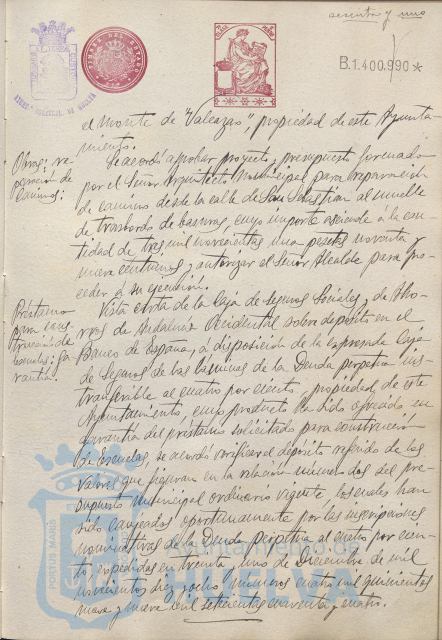 sesenta y uno
B.1.400.990 *
el monte de "Valcazao", propiedad de este Ayunta-
miento.
Obras: re-
paración de
caminos:
Se acordó aprobar proyecto y presupuesto formado
por el Señor Arquitecto Municipal para reparación
de caminos desde la calle de San Sebastián al muelle
de trasbordo de basuras, cuyo importe asciende a la can-
tidad de tres mil novecientas una pesetas noventa y
nueve centimos, y autorizar al Señor Alcalde para pro-
ceder a su ejecución.
Préstamo
para cons-
trucción de
escuelas: ga-
rantía.
Vista carta de la Caja de Seguros Sociales y de Aho-
rros de Andalucía Occidental sobre depósito en el
Banco de España, a disposición de la expresada Caja
de Seguros de las láminas de la Deuda perpetua in-
transferible al cuatro por ciento, propiedad de este
Ayuntamiento, cuyo producto ha sido ofrecido en
garantía del préstamo solicitado para construcción
de Escuelas, se acordó verificar el depósito referido de las
que figuran en la relación número dos del pre-
supuesto municipal ordinario vigente, los cuales han
sido canjeados oportunamente por las inscripciones
nominativas de la Deuda perpetua al cuatro por cien-
to expedidas en treinta y uno de Diciembre de mil
novecientos diez y ocho, números cuatro mil quinientos
nueve y nueve mil setecientos cuarenta y cuatro.
PORTUS MARIS
Ayuntamiento de
HUELVA